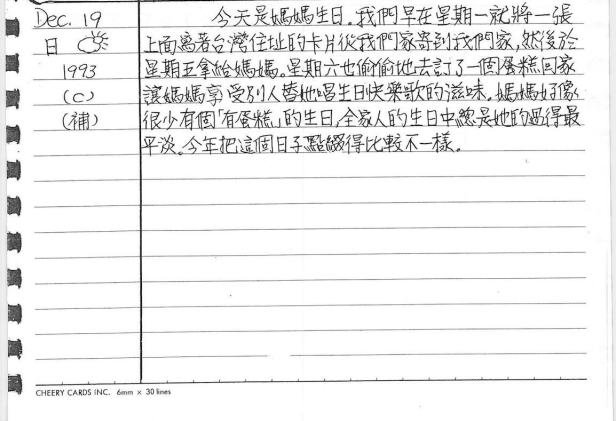 Dec. 19 今天是媽媽生日。我們早在星期一就將一張
日 上面寫著台灣住址的卡片從我們家寄到我們家,然後於
1993 星期五拿給媽媽。星期六也偷偷地去訂了一個蛋糕回家
(c) 讓媽媽享受別人替她唱生日快樂歌的滋味。媽媽好像
(補) 很少有個「有蛋糕」的生日,全家人的生日中總是她的過得最
平淡。今年把這個日子點綴得比較不一樣。
CHEERY CARDS INC. 6mm × 30 lines